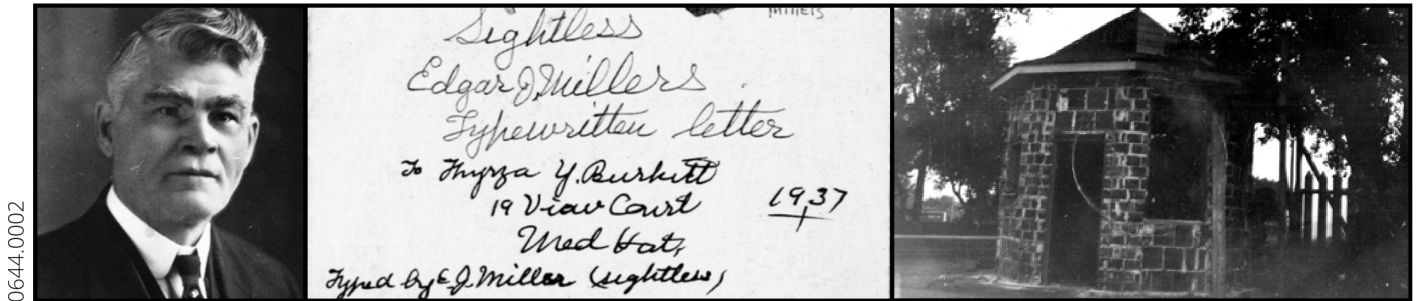 0644.0002
Millers
Sightless
Edgar J. Millers
Typewritten letter
To Thyrza Y. Burkitt
19 View Court
1937
Med Hat,
Typed by E. J. Miller (sightless)